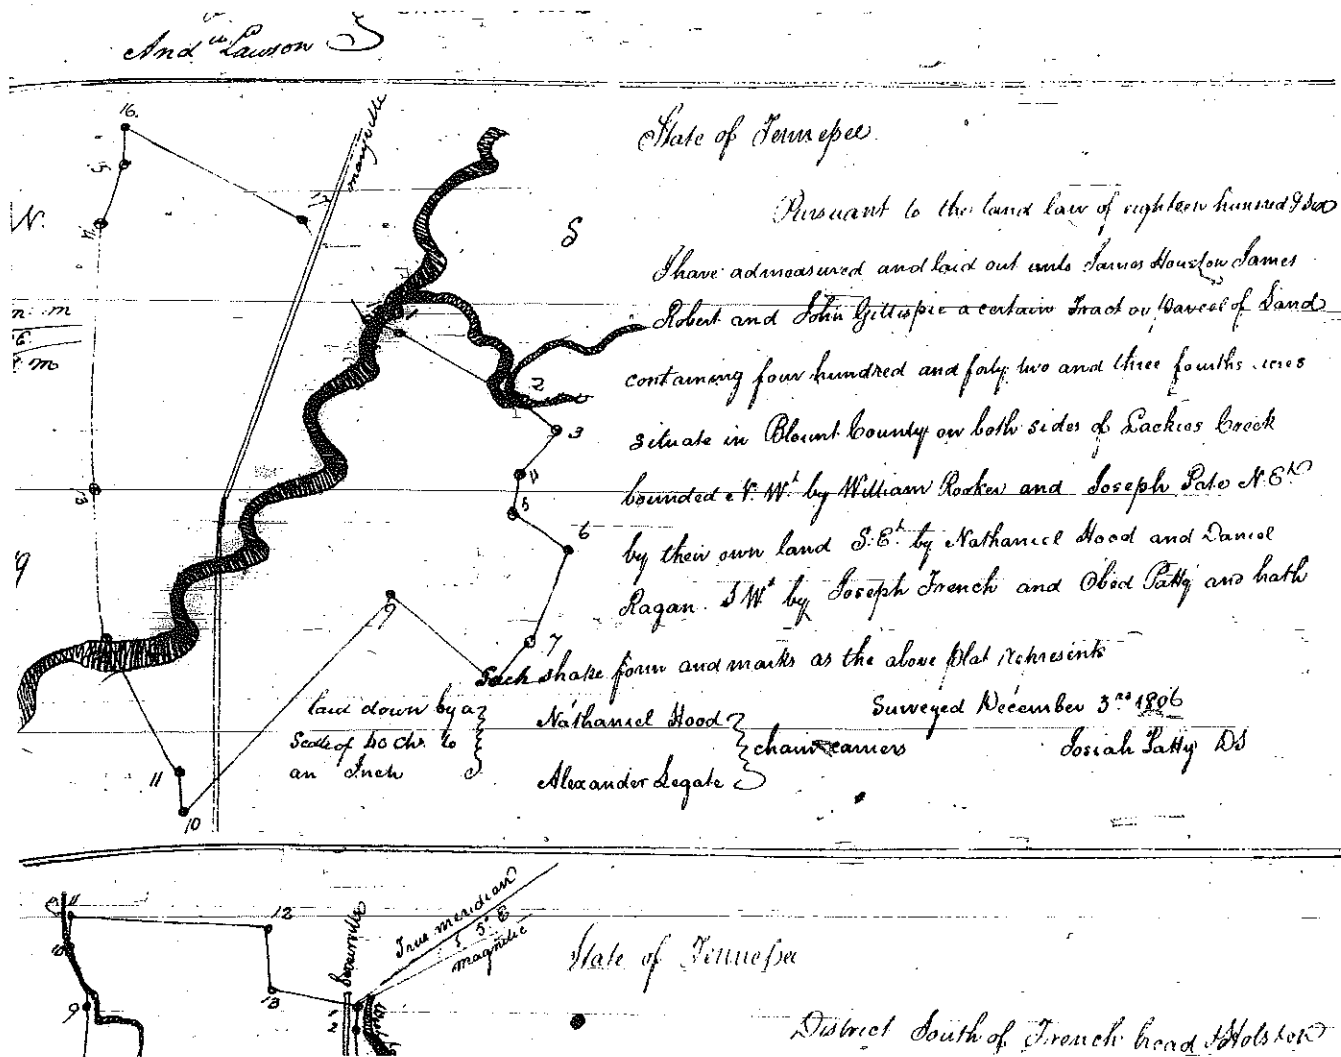 And^w Lawson
State of Tennessee
Pursuant to the land law of eighteen hundred & Six
I have admeasured and laid out unto James Houston James
Robert and John Gillispie a certain Tract or Parcel of Land
containing four hundred and forty two and three fourths acres
situate in Blount County on both sides of Lackies Creek
bounded N. W^t by William Rooker and Joseph Pate N. E^t
by their own land S. E^t by Nathaniel Hood and Daniel
Ragan. S W^t by Joseph French and Obed Patty and hath
Such shape form and marks as the above plat represents
laid down by a
Scale of 40 Ch^s to
an Inch
Nathaniel Hood
Alexander Legate
chain carriers
Surveyed December 3^rd 1806
Josiah Patty DS
maryville
N.
S
16
15
17
14
1
2
3
4
5
6
13
9
7
11
10
11
12
True meridian
5° E
magnetic
9
13
State of Tennessee
District South of French broad & Holston